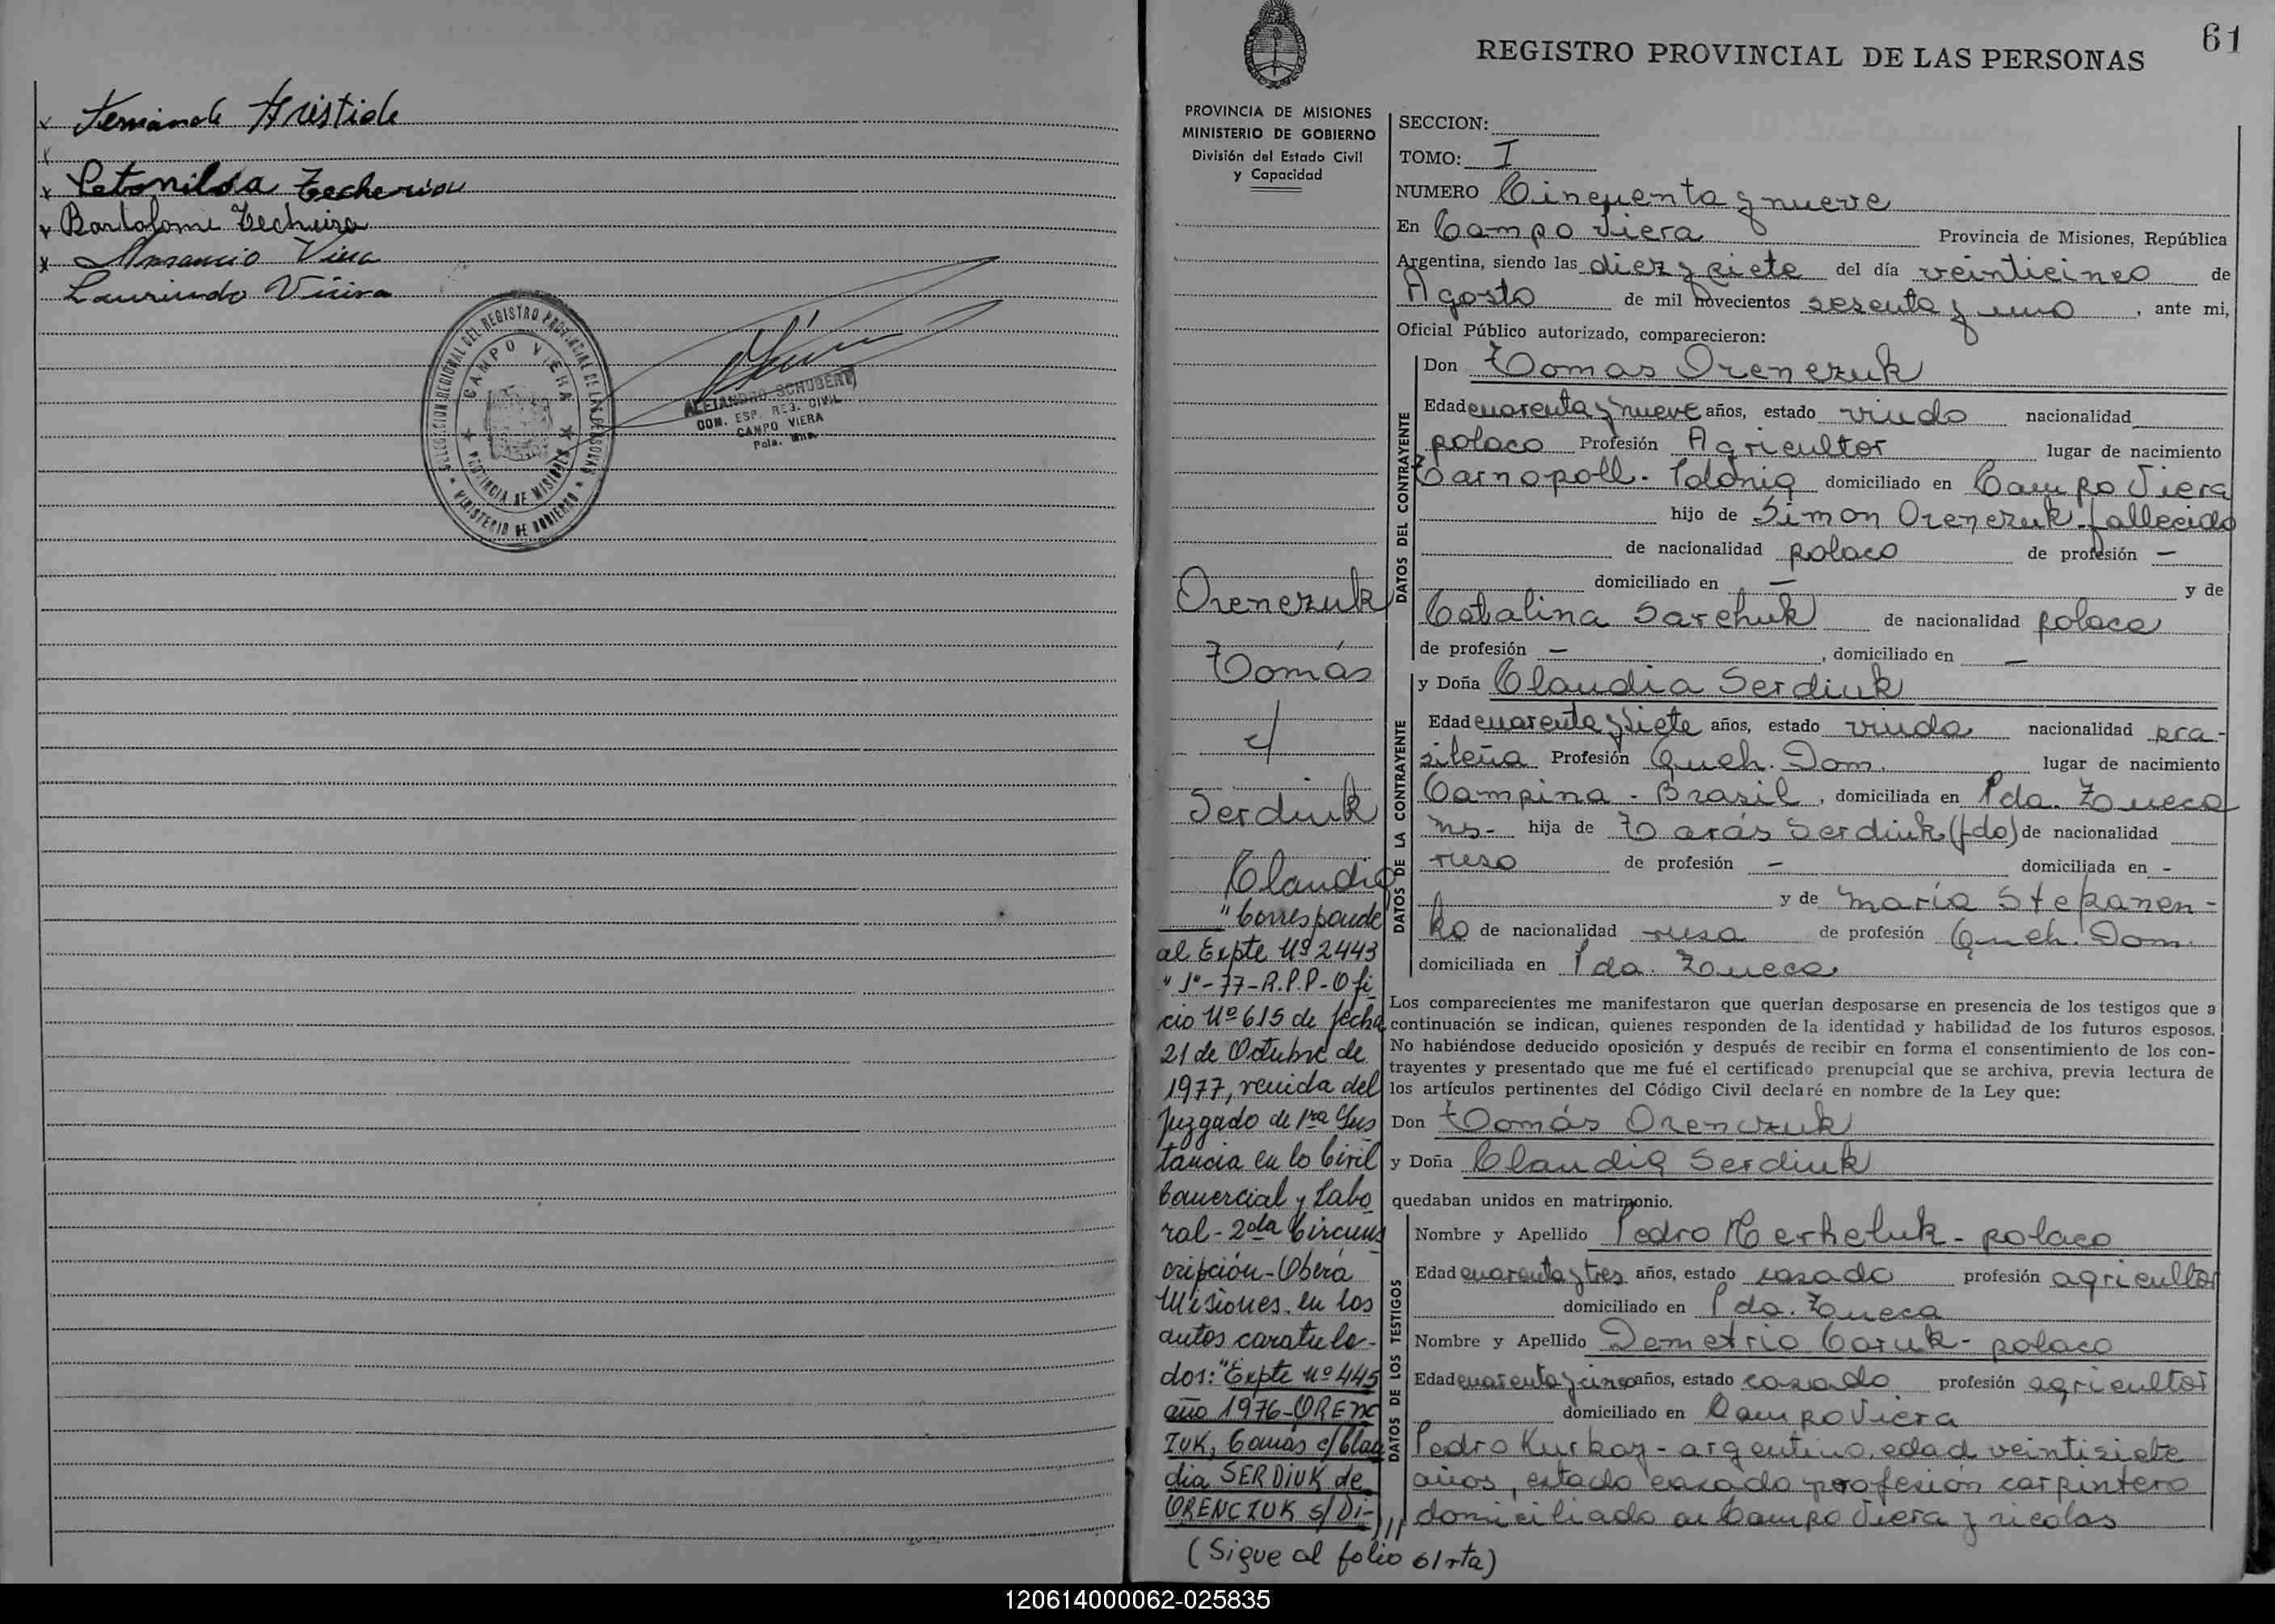 Aristide
Petronilda
Bartolome
Vieira
Laurindo Vieira
DELEGACION REGIONAL DEL REGISTRO PROVINCIAL DE LAS PERSONAS
CAMPO VIERA
PROVINCIA DE MISIONES
MINISTERIO DE GOBIERNO
ALEJANDRO SCHUBERT
COM. ESP. REG. CIVIL
CAMPO VIERA
Pcia. Mnes.
61
REGISTRO PROVINCIAL DE LAS PERSONAS
PROVINCIA DE MISIONES
MINISTERIO DE GOBIERNO
División del Estado Civil
y Capacidad
Orenczuk
Tomás
c/
Serdiuk
Claudia
"Corresponde
al Expte Nº 2443
"J"-77-R.P.P-Ofi
cio Nº 615 de fecha
21 de Octubre de
1977, venida del
Juzgado de 1ra Ins
tancia en lo Civil
Comercial y Labo
ral - 2da Circuns
cripción - Oberá
Misiones. en los
autos caratula-
dos: "Expte nº 445
año 1976-ORENC
ZUK, Tomás c/Clau
dia SERDIUK de
ORENCZUK s/Di-)//
(Sigue al folio 61 vta)
SECCION:
TOMO: I
NUMERO Cincuenta y nueve
En Campo Viera Provincia de Misiones, República
Argentina, siendo las diez y siete del día veinticinco de
Agosto de mil novecientos sesenta y uno, ante mi,
Oficial Público autorizado, comparecieron:
DATOS DEL CONTRAYENTE
Don Tomas Orenczuk
Edad cuarenta y nueve años, estado viudo nacionalidad
polaco Profesión Agricultor lugar de nacimiento
Tarnopoll. Polonia domiciliado en Campo Viera
hijo de Simon Orenczuk - fallecido
de nacionalidad polaco de profesión —
domiciliado en — y de
Catalina Sarchuk de nacionalidad polaca
de profesión —, domiciliado en —
DATOS DE LA CONTRAYENTE
y Doña Claudia Serdiuk
Edad cuarenta y siete años, estado viuda nacionalidad bra-
sileña Profesión Queh. Dom. lugar de nacimiento
Campina - Brasil, domiciliada en Pda. Zueca
Ms- hija de Tarás Serdiuk (fdo) de nacionalidad
ruso de profesión — domiciliada en -
y de María Stepanen-
ko de nacionalidad rusa de profesión Queh. Dom.
domiciliada en Pda. Zueca
Los comparecientes me manifestaron que querían desposarse en presencia de los testigos que a
continuación se indican, quienes responden de la identidad y habilidad de los futuros esposos.
No habiéndose deducido oposición y después de recibir en forma el consentimiento de los con-
trayentes y presentado que me fué el certificado prenupcial que se archiva, previa lectura de
los artículos pertinentes del Código Civil declaré en nombre de la Ley que:
Don Tomás Orenczuk
y Doña Claudia Serdiuk
quedaban unidos en matrimonio.
DATOS DE LOS TESTIGOS
Nombre y Apellido Pedro Merheluk - polaco
Edad cuarenta y tres años, estado casado profesión agricultor
domiciliado en Pda. Zueca
Nombre y Apellido Demetrio Caruk - polaco
Edad cuarenta y cinco años, estado casado profesión agricultor
domiciliado en Campo Viera
Pedro Kurkoz - argentino, edad veintisiete
años, estado casado profesión carpintero
domiciliado en Campo Viera y nicolas
120614000062-025835